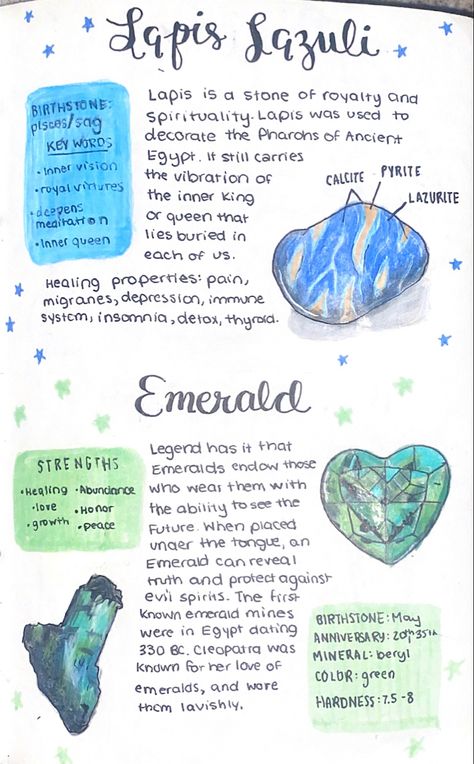 Lapis Lazuli
BIRTHSTONE:
pisces/sag
KEY WORDS
• Inner vision
• royal virtures
• deepens
meditation
• Inner queen
Lapis is a stone of royalty and
spirituality. Lapis was used to
decorate the Pharohs of Ancient
Egypt. It still carries
the vibration of
the inner King
or queen that
lies buried in
each of us.
CALCITE
PYRITE
LAZURITE
Healing properties: pain,
migranes, depression, immune
system, insomnia, detox, thyroid.
Emerald
STRENGTHS
• Healing • Abundance
• love • Honor
• growth • peace
Legend has it that
Emeralds endow those
who wear them with
the ability to see the
Future. When placed
under the tongue, an
Emerald can reveal
truth and protect against
evil spirits. The first
known emerald mines
were in Egypt dating
330 BC. Cleopatra was
known for her love of
emeralds, and wore
them lavishly.
BIRTHSTONE: May
ANNIVERSARY: 20th 35th
MINERAL: beryl
COLOR: green
HARDNESS: 7.5-8